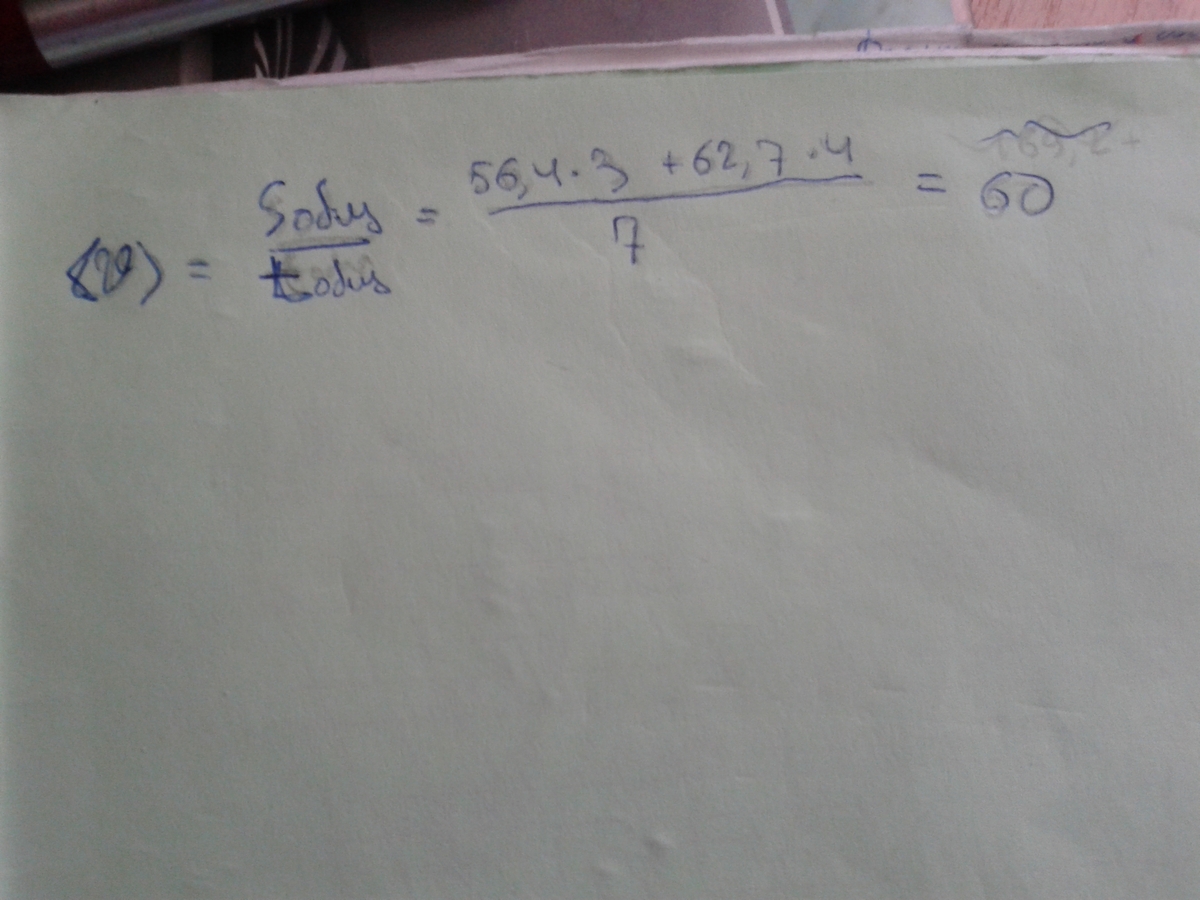 <υ> = Sобщ / tобщ = 56,4 · 3 + 62,7 · 4 / 7 = 60